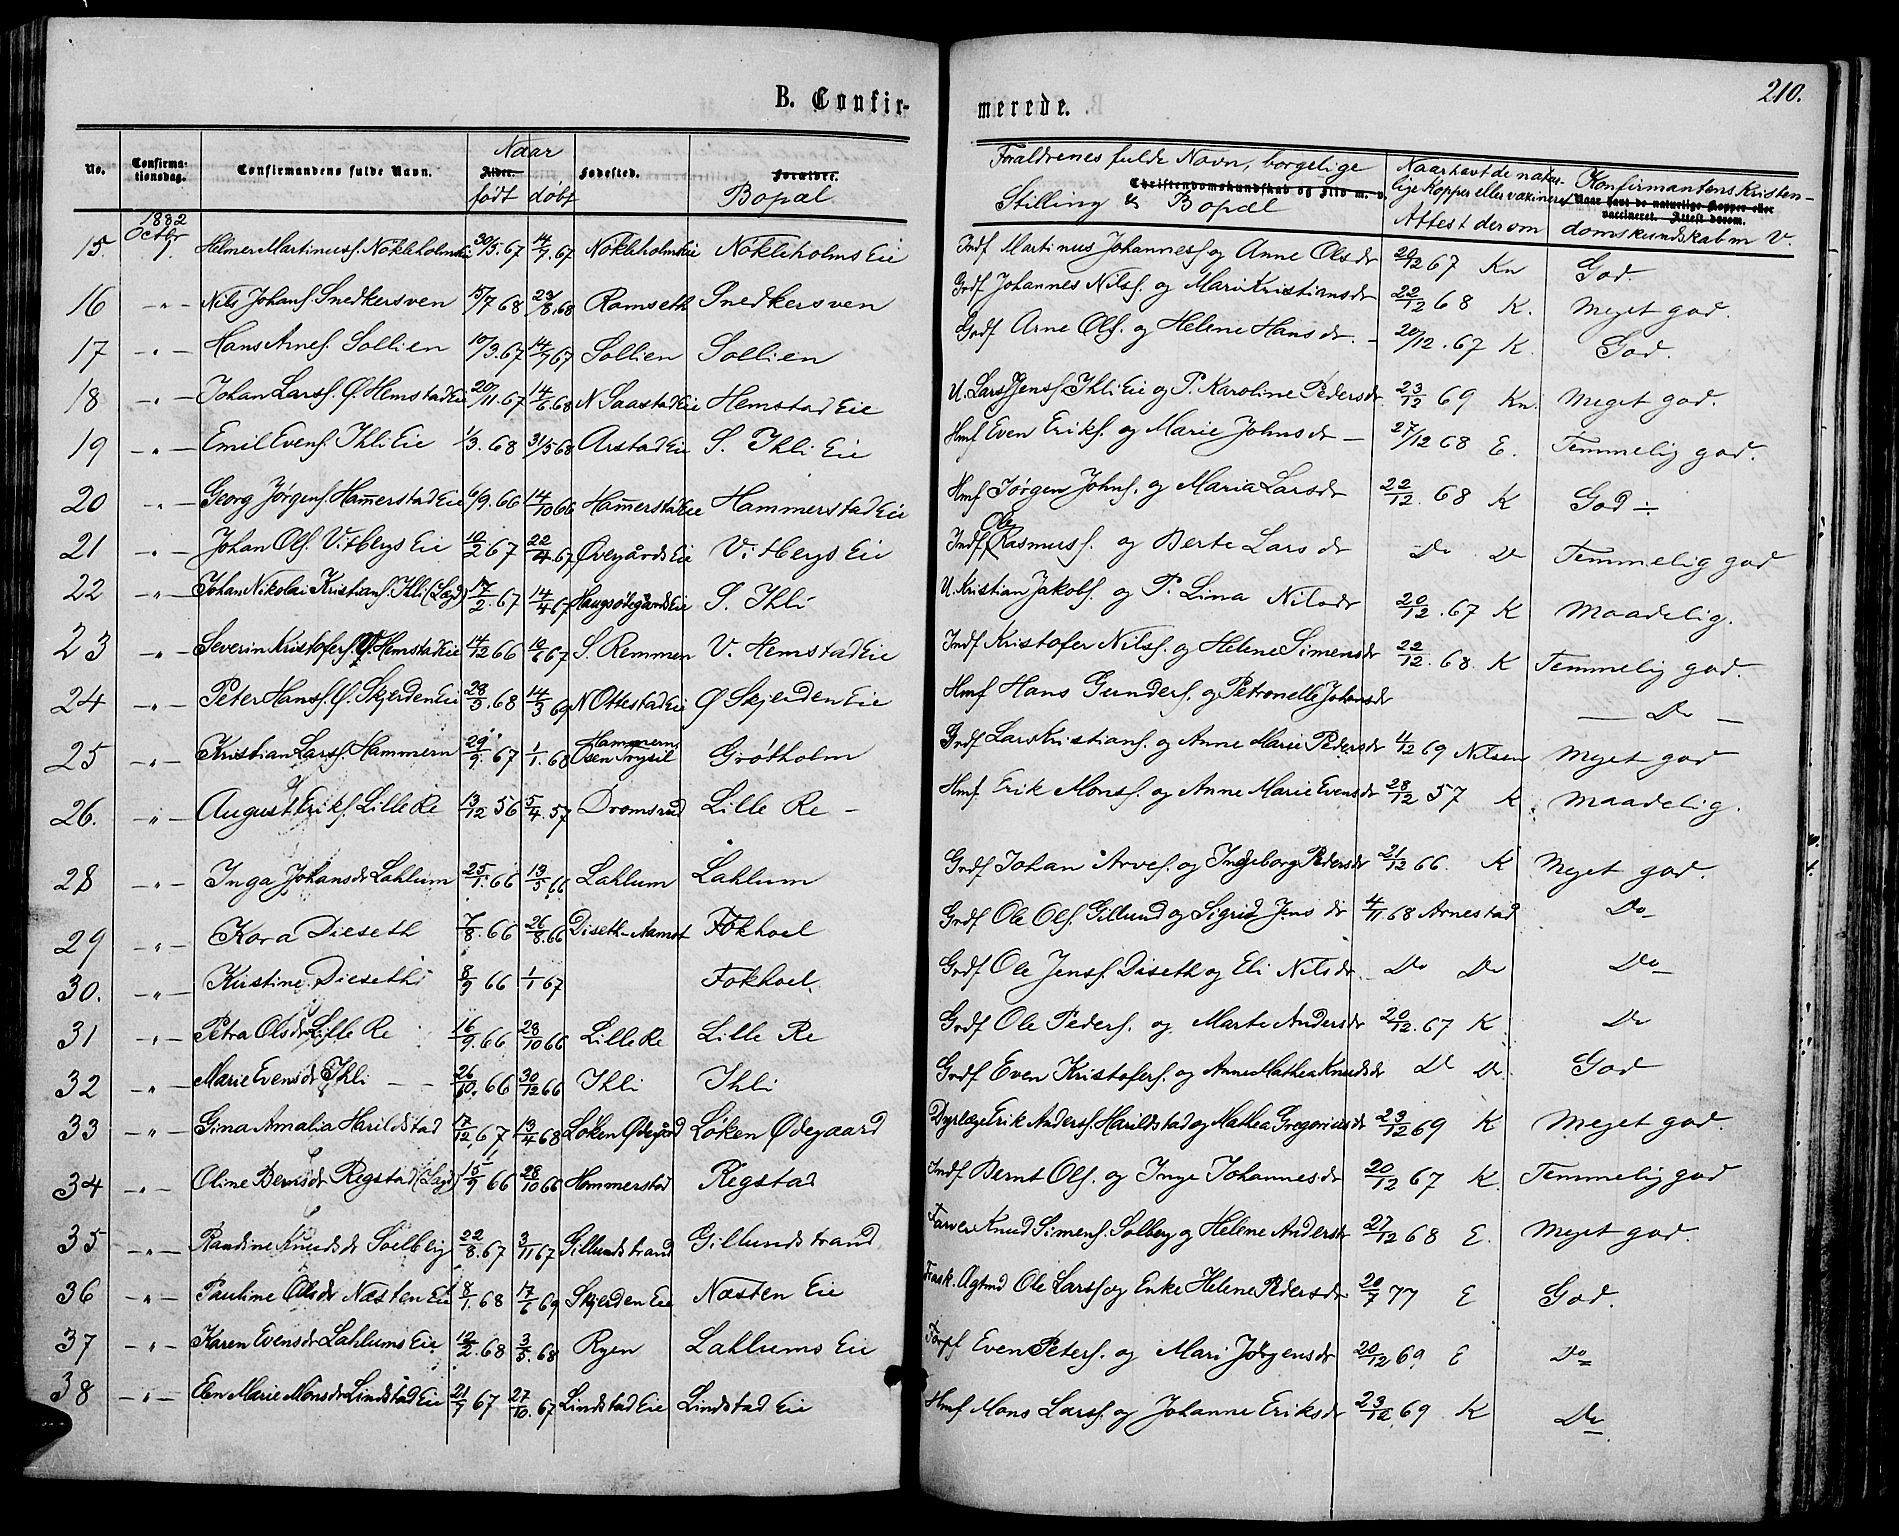 210.
B. Confir- merede.
No. Confirma-tionsdag. Confirmandens fulde Navn. Naar Alder. født døbt Fødested. Forældre. Bopæl Forældrenes fulde Navn, borgelige Christendomskundskab og Flid m. v. Stilling & Bopæl Naar havt de natur-lige Kopper eller vakineret Attest derom Konfirmantens Kristen- Naar havt de naturlige Kopper eller vaccineret. Attest derom. domskundskab m V.
1882
15. Octbr 1. Helmer Martinuss. Nökleholmseie 30/3.67 14/7.67 Nökleholmseie Nökleholms Eie Indf Martinus Johanness og Anne Olsdr 20/12 67 Kn God.
16 -"- Nils Johans Snedkersven 15/7 68 23/8.68 Ramseth Snedkersven Grdf Johannes Nilss. og Mari Kristiansdr 22/12 68 K. Meget god.
17 -"- Hans Arnes. Sollien 10/3.67 14/7 67 Sollien Sollien Grdf Arne Ols. og Helene Hansdr. - 20/12.67 K. God.
18 -"- Johan Larss. Ø. Hemstad Eie 20/11.67 14/6.68 N Saastad Eie Hemstad Eie U. Lars Jenss. Ihli Eie og P. Karoline Pedersdr. 23/12 69 Kn. Meget god.
19 -"- Emil Evens. Ihli Eie 1/3.68 31/5 68 Arstad Eie S. Ihli Eie Hmf Even Eriks. og Marie Johnsdr - 27/12 68 E. Temmelig god.
20 -"- Georg Jørgens. Hammerstad Eie 6/9.66 14/10 66 Hammerstad Eie Hammerstad Eie Hmf Jörgen Johns. og Maria Larsdr 22/12.68 K God ÷
21 -"- Johan Ols. Vitbergs Eie 10/2 67 22/4 67 Øvegårds Eie Vitbergs Eie Indf Ole Rasmuss. og Berte Larsdr Do Do Temmelig god
22 -"- Johan Nikolai Kristians. Ihli (Lægd) 17/2.67 14/4 67 Haugsödegårds Eie S. Ihli U. Kristian Jakobs. og P. Lina Nilsdr 20/12.67 K Maadelig.
23 -"- Severin Kristofers. V. Hemstad Eie 14/12 66 10/6 67 S. Remmen V. Hemstad Eie Indf Kristofer Nilss. og Helene Simensdr 22/12.68 K Temmelig god.
24 -"- Peter Hanss. Ø. Skjerden Eie 28/5.68 14/3 69 N Ottestad Eie Ø Skjerden Eie Hmf Hans Gunders. og Petronelle Johansdr - Do -
25 -"- Kristian Larss. Hammern 29/9.67 1/1.68 Hammern Osen Trysil Grötholm Grdf Lars Kristians. og Anne Marie Pedersdr 4/12 69 Nilsen Meget god
26. -"- August Eriks. Lille Re 13/12 56 5/4.57 Dromsrud Lille Re - Hmf. Erik Monss. og Anne Marie Evensdr 28/12 57 K. Maadelig.
28 -"- Inga Johansdr Lahlum 25/1.66 13/5 66 Lahlum Lahlum Grdf Johan Arves. og Ingeborg Pedersdr 21/12 66. K Meget god.
29 -"- Kora Dieseth 7/8.66 26/8.66 Diseth-Aamot Fokhoel Grdf Ole Ols. Gillund og Sigrid Jensdr 4/11 68 Arnestad Do
30. -"- Kirstine Dieseth 8/9 66 1/1 67 Fokhoel. Grdf Ole Jenss. Diseth og Eli Nilsdr. Do Do Do
31 -"- Petra Olsdr Lille Re 16/9.66 28/10 66 Lille Re Lille Re Grdf Ole Peders. og Marte Andersdr 20/12.67 K. Do
32 -"- Marie Evensdr Ihli - - 26/10.66 30/12 66 Ihli Ihli Grdf Even Kristofers. og Anne Mathea Knudsdr Do Do. God
33 -"- Gina Amalia Harildstad 17/12.67 13/4 68 Løken Ødegård Løken Ødegaard Dyrlæge Erik Anderss Harildstad og Mathea Gregoriusdr 23/12 69 K Meget god.
34 -"- Oline Berntsdr Regstad (Lægd) 15/9 66 28/10 66 Hammerstad Regstad Indf. Bernt Ols. og Inge Johannesdr 20/12 67 K. Temmelig god
35 -"- Randine Knudsdr Solberg 22/8.67 3/11 67 Gillundstrand Gillundstrand Farver Knud Simens. Solberg og Helene Andersdr 27/12 68 E. Meget god.
36 -"- Pauline Olsdr Næsten Eie 8/1.68 17/6 69 Skjerden Eie Næsten Eie Frask. Agtmd Ole Larss og Enke Helene Pedersdr 20/7 77 E God.
37 -"- Karen Evensdr Lahlums Eie 12/2.68 3/5.68 Ryen Lahlums Eie Torpf Even Peters. og Mari Jörgensdr 20/12 69. E Do
38 -"- Elen Marie Monsdr Lindstad Eie 21/9 67 27/10.67 Lindstad Eie Lindstad Eie Hmf Mons Larss. og Johanne Eriksdr 23/12.69 K Do